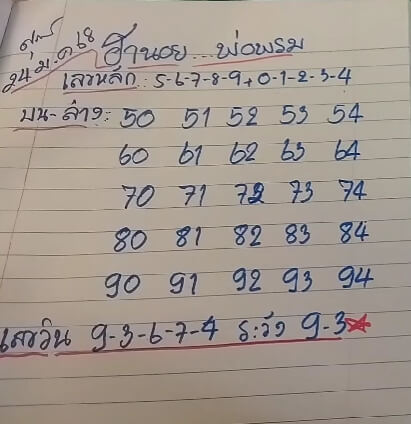 ศุกร์
24 ม.ค 68
ฮานอย... พ่อพรม
เลขหลัก : 5-6-7-8-9+0-1-2-3-4
บน-ล่าง: 50 51 52 53 54
60 61 62 63 64
70 71 72 73 74
80 81 82 83 84
90 91 92 93 94
เลขวิน 9-3-6-7-4 ระวัง 9-3